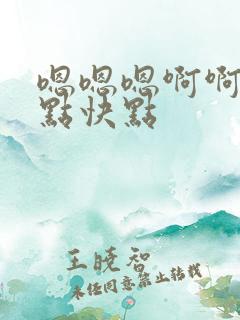 嗯嗯嗯啊啊
點快點
王晓智
未经同意禁止转载